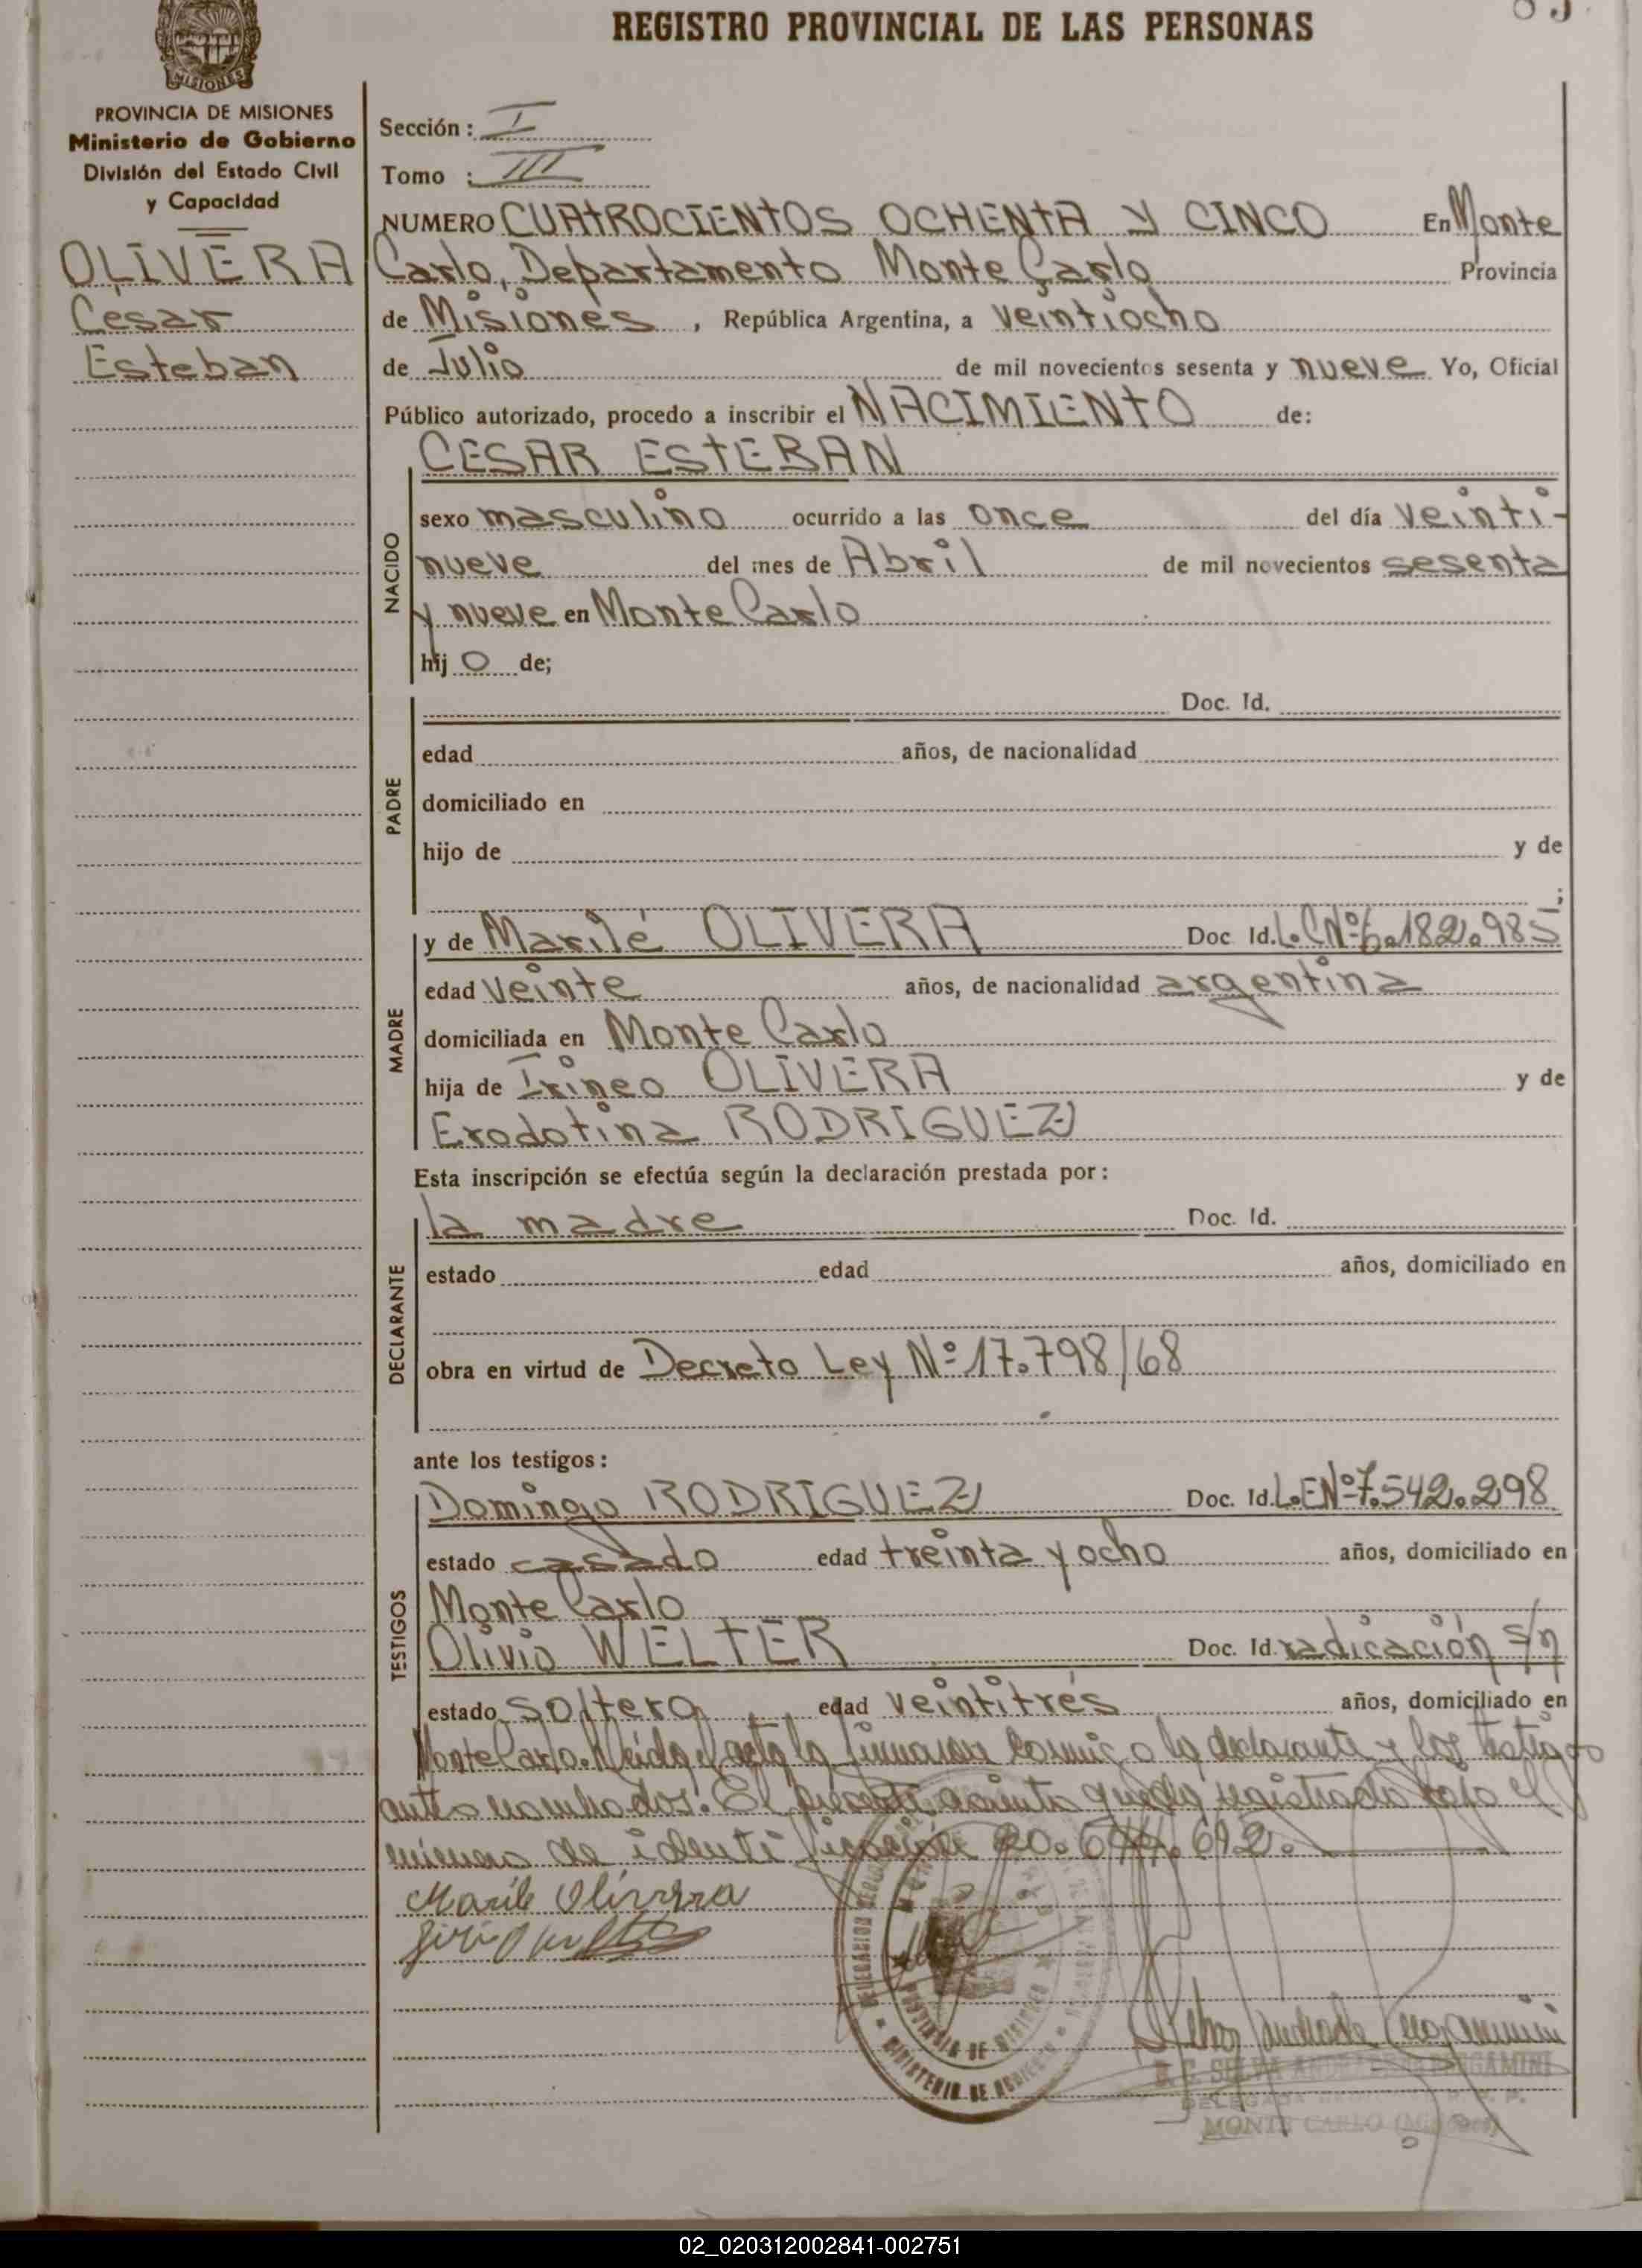 REGISTRO PROVINCIAL DE LAS PERSONAS
MISIONES
PROVINCIA DE MISIONES
Ministerio de Gobierno
División del Estado Civil
y Capacidad
OLIVERA
Cesar
Esteban
Sección : I
Tomo : III
NUMERO CUATROCIENTOS OCHENTA Y CINCO En Monte
Carlo, Departamento Monte Carlo Provincia
de Misiones, República Argentina, a veintiocho
de Julio de mil novecientos sesenta y nueve Yo, Oficial
Público autorizado, procedo a inscribir el NACIMIENTO de:
NACIDO
CESAR ESTEBAN
sexo masculino ocurrido a las once del día veinti-
nueve del mes de Abril de mil novecientos sesenta
y nueve en Monte Carlo
hij o de;
PADRE
Doc. Id.
edad años, de nacionalidad
domiciliado en
hijo de y de
;
MADRE
y de Marilé OLIVERA Doc Id. L.C Nº 6.182.985
edad veinte años, de nacionalidad argentina
domiciliada en Monte Carlo
hija de Irineo OLIVERA y de
Erodotina RODRIGUEZ
Esta inscripción se efectúa según la declaración prestada por :
DECLARANTE
la madre Doc. Id.
estado edad años, domiciliado en
obra en virtud de Decreto Ley Nº 17.798/68
ante los testigos :
TESTIGOS
Domingo RODRIGUEZ Doc. Id. L.E Nº 7.542.298
estado casado edad treinta y ocho años, domiciliado en
Monte Carlo
Olivio WELTER Doc. Id. radicación s/n
estado soltero edad veintitrés años, domiciliado en
Monte Carlo. Leída el acta la firmaron conmigo la declarante y los testigos
antes nombrados. El presente asiento queda registrado bajo el
número de identificación 20.644.612.
Marile Olivera
PROVINCIA DE MISIONES
MINISTERIO DE GOBIERNO
MONTE CARLO (Misiones)
02_020312002841-002751